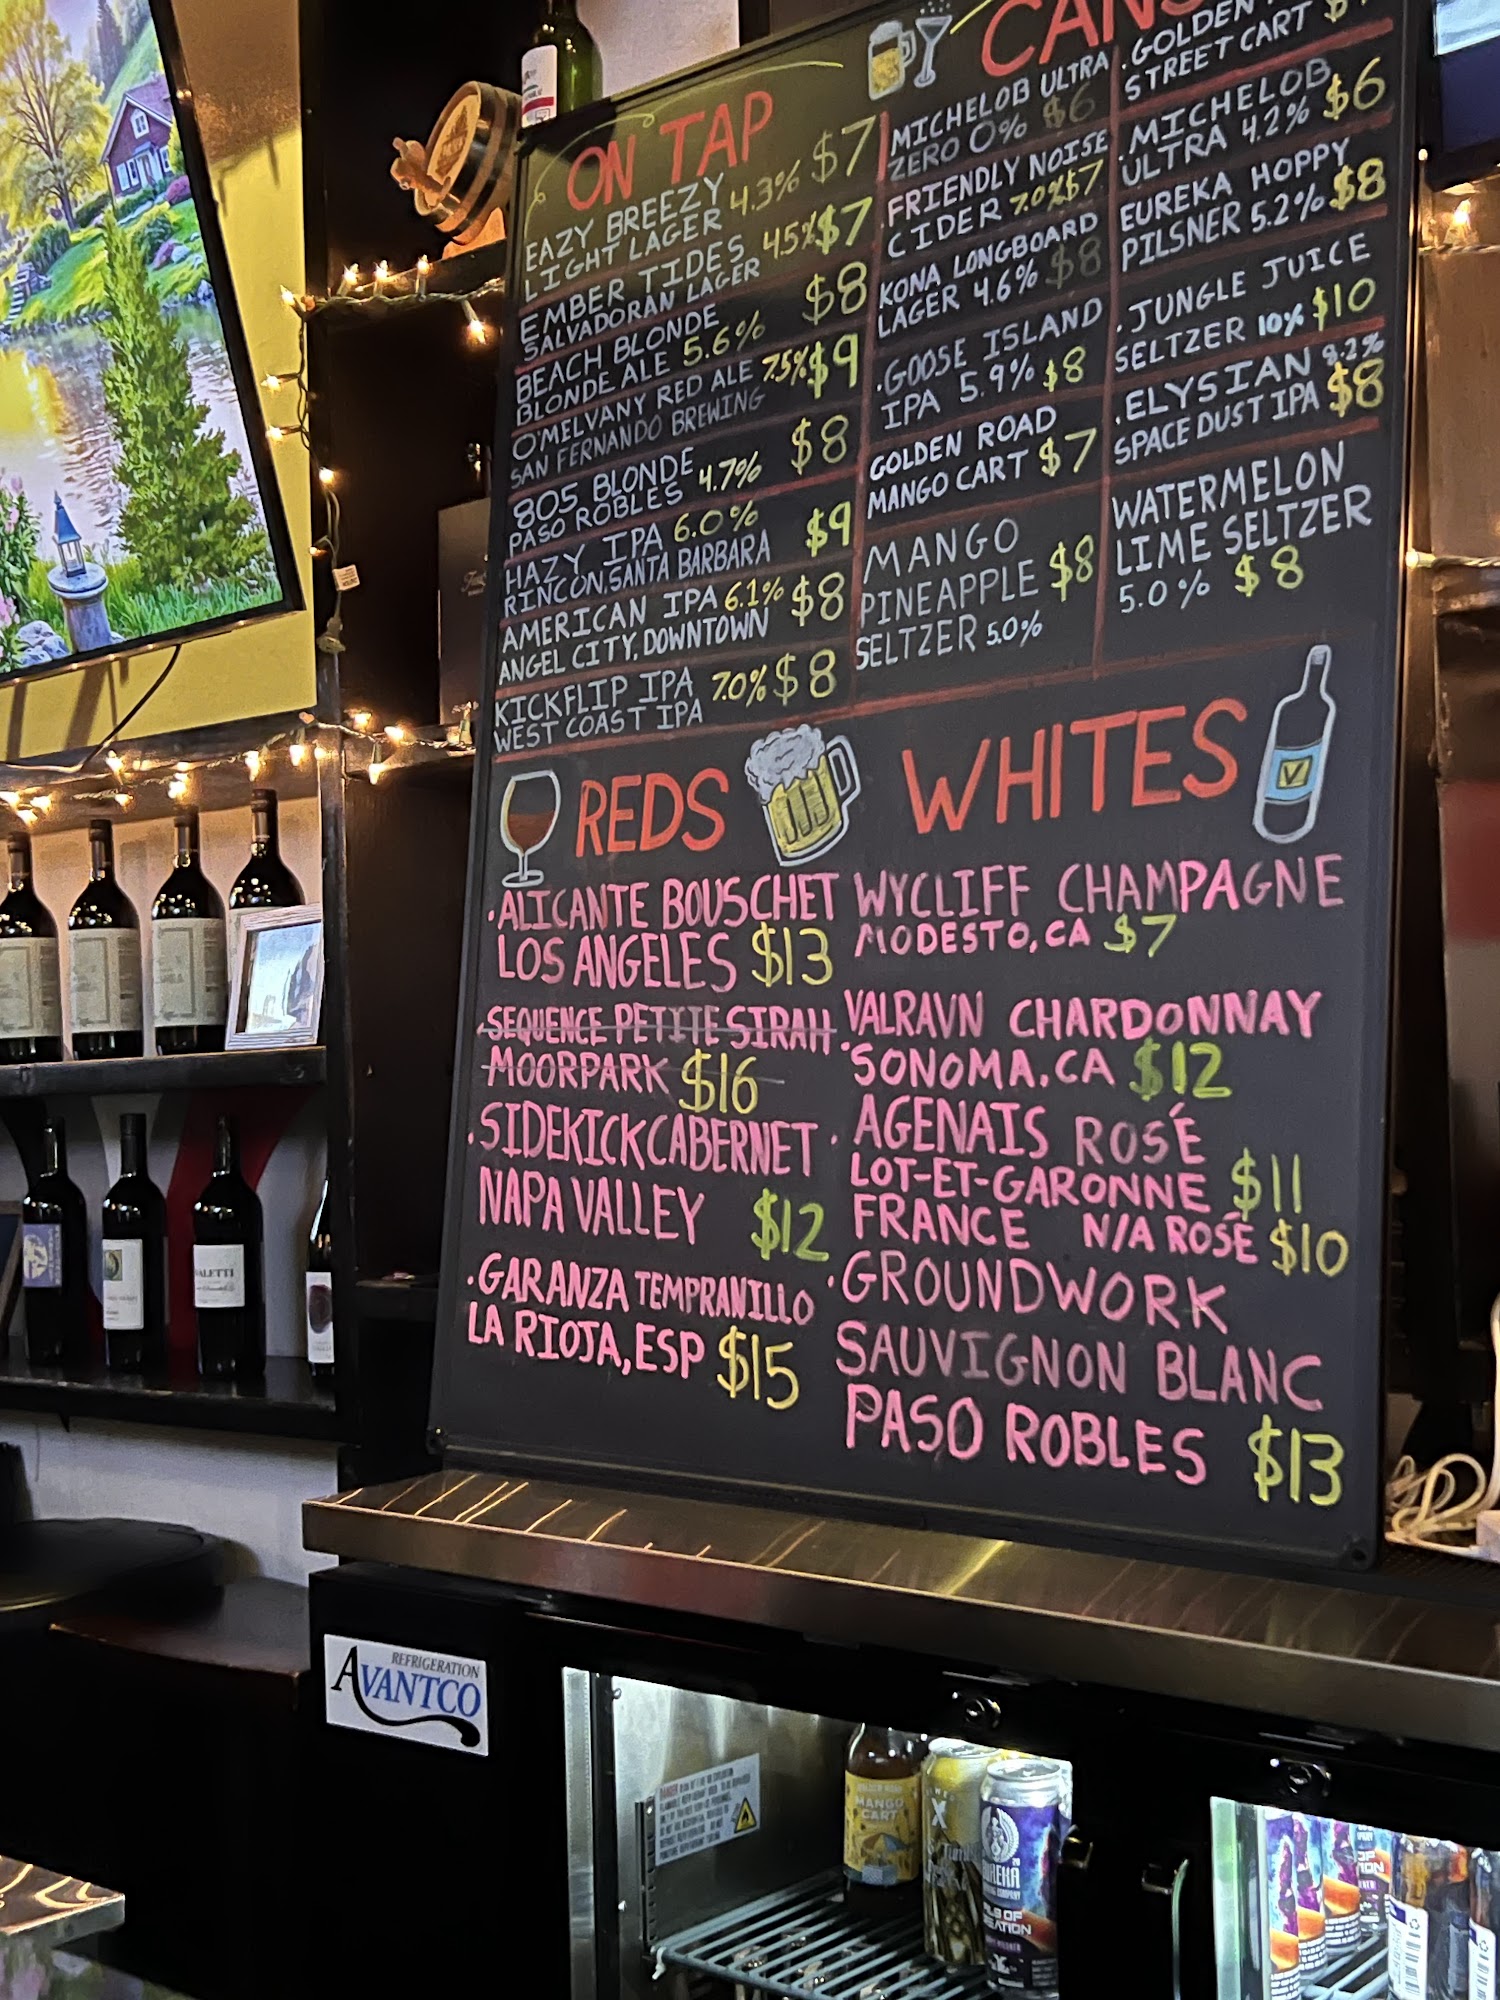 ON TAP
EAZY BREEZY
LIGHT LAGER 4.3% $7
EMBER TIDES
SALVADORAN LAGER 4.5% $7
BEACH BLONDE
BLONDE ALE 5.6% $8
O'MELVANY RED ALE 7.5% $9
SAN FERNANDO BREWING
805 BLONDE
PASO ROBLES 4.7% $8
HAZY IPA 6.0%
RINCON, SANTA BARBARA $9
AMERICAN IPA 6.1% $8
ANGEL CITY, DOWNTOWN
KICKFLIP IPA 7.0% $8
WEST COAST IPA
CANS
MICHELOB ULTRA
ZERO 0% $6
FRIENDLY NOISE
CIDER 7.0% $7
KONA LONGBOARD
LAGER 4.6% $8
.GOOSE ISLAND
IPA 5.9% $8
GOLDEN ROAD
MANGO CART $7
MANGO
PINEAPPLE $8
SELTZER 5.0%
.GOLDEN
STREET CART
.MICHELOB
ULTRA 4.2% $6
EUREKA HOPPY
PILSNER 5.2% $8
.JUNGLE JUICE
SELTZER 10% $10
.ELYSIAN 8.2%
SPACE DUST IPA $8
WATERMELON
LIME SELTZER
5.0% $8
REDS
.ALICANTE BOUSCHET
LOS ANGELES $13
.SEQUENCE PETITE SIRAH
MOORPARK $16
.SIDEKICK CABERNET
NAPA VALLEY $12
.GARANZA TEMPRANILLO
LA RIOJA, ESP $15
WHITES
WYCLIFF CHAMPAGNE
MODESTO, CA $7
.VALRAVN CHARDONNAY
SONOMA, CA $12
.AGENAIS ROSÉ
LOT-ET-GARONNE $11
FRANCE N/A ROSÉ $10
.GROUNDWORK
SAUVIGNON BLANC
PASO ROBLES $13
REFRIGERATION
AVANTCO
DANGER
MANGO
CART
EUREKA